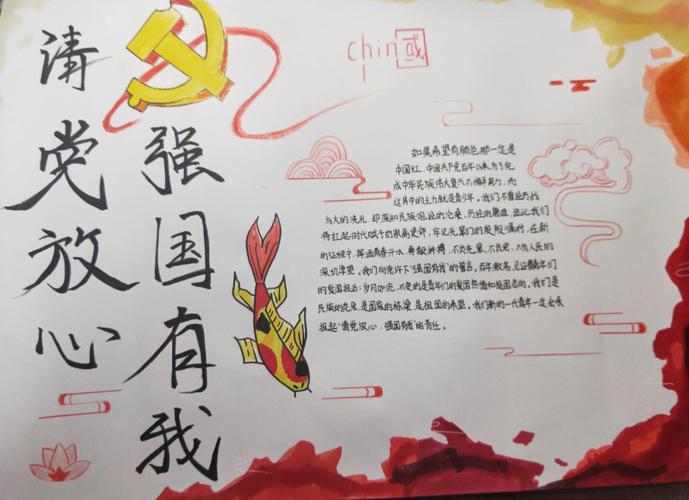 请党放心
强国有我
chin
如果希望有颜色那一定是
中国红。中国共产党百年以来为了完
成中华民族伟大复兴不懈努力，而
这其中的主力就是青少年。我们不曾经历战
火的洗礼，却深知民族
历经的艰难，因此我们
得扛起时代赋予的崇高使命，牢记先辈们的殷殷嘱托，在新
的征程中，挥洒青春汗水，勇毅拼搏，不负先辈，不负党，不负人民的
深切厚望。我们向党许下“强国有我”的誓言，百年献礼，见证着青年们
的爱国担当；岁月如流，不变的是青年们的爱国热情和报国志向。我们是
民族的花朵，是国家的栋梁，是祖国的希望。我们新的一代青年一定会承
担起“请党放心，强国有我”的责任。